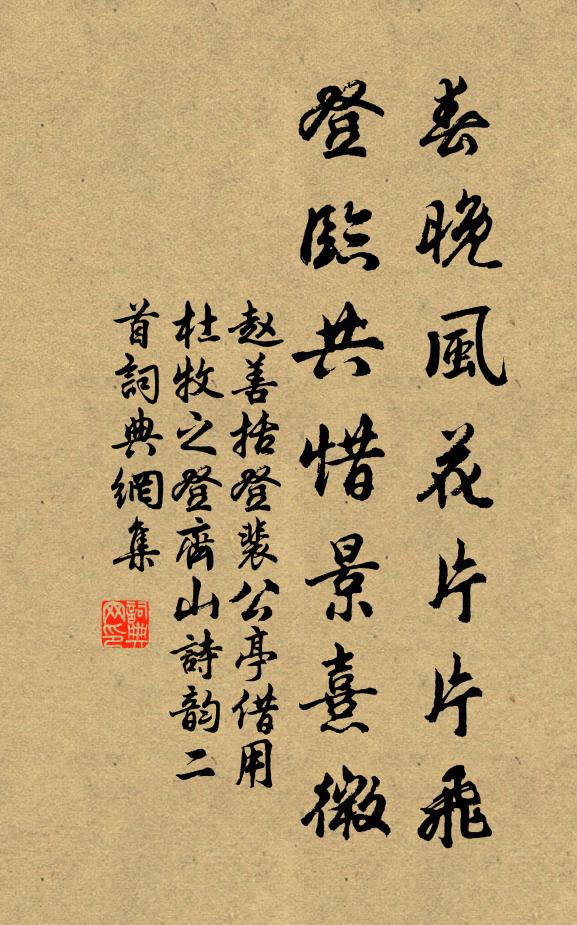 春晚風花片片飛
登臨共惜景熹微
赵善括登裴公亭借用
杜牧之登齊山詩韵二
首詞典網集
詞典网印